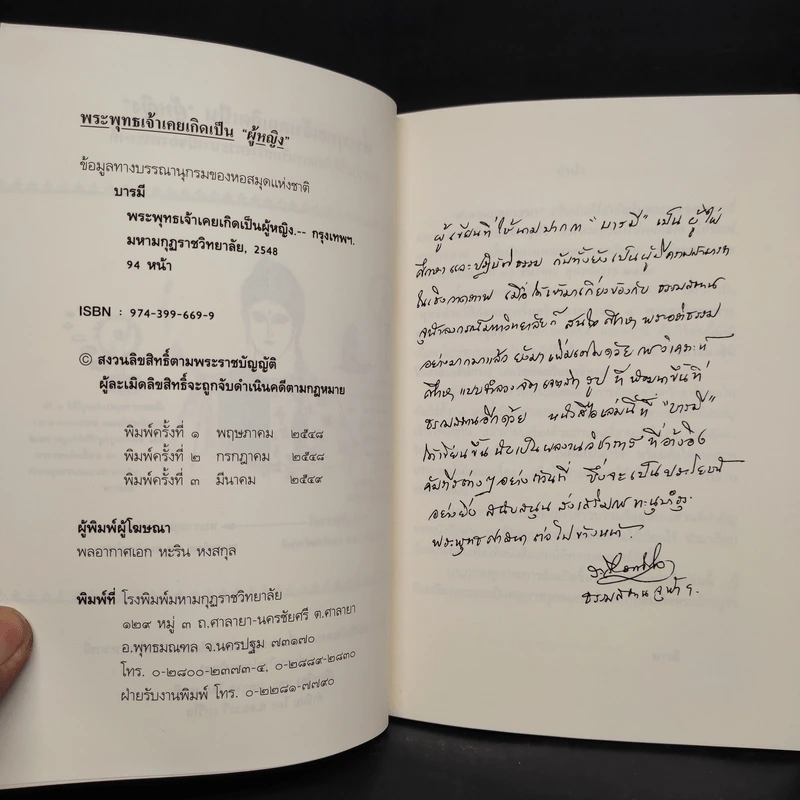 พระพุทธเจ้าเคยเกิดเป็น "ผู้หญิง"
ข้อมูลทางบรรณานุกรมของหอสมุดแห่งชาติ
บารมี
พระพุทธเจ้าเคยเกิดเป็นผู้หญิง.-- กรุงเทพฯ.
มหามกุฏราชวิทยาลัย, 2548
94 หน้า
ISBN : 974-399-669-9
© สงวนลิขสิทธิ์ตามพระราชบัญญัติ
ผู้ละเมิดลิขสิทธิ์จะถูกจับดำเนินคดีตามกฎหมาย
พิมพ์ครั้งที่ ๑ พฤษภาคม ๒๕๔๘
พิมพ์ครั้งที่ ๒ กรกฎาคม ๒๕๔๘
พิมพ์ครั้งที่ ๓ มีนาคม ๒๕๔๙
ผู้พิมพ์ผู้โฆษณา
พลอากาศเอก หะริน หงสกุล
พิมพ์ที่ โรงพิมพ์มหามกุฏราชวิทยาลัย
๑๒๙ หมู่ ๓ ถ.ศาลายา-นครชัยศรี ต.ศาลายา
อ.พุทธมณฑล จ.นครปฐม ๗๓๑๗๐
โทร. ๐-๒๘๐๐-๒๓๗๓-๔, ๐-๒๘๘๙-๒๘๓๐
ฝ่ายรับงานพิมพ์ โทร. ๐-๒๒๘๑-๗๗๙๐
ผู้เขียนที่ใช้นามปากกา "บารมี" เป็นผู้ใฝ่
ศึกษาและปฏิบัติธรรม กับทั้งยังเป็นผู้มีความสามารถ
ในเชิง เมื่อได้เข้ามาเกี่ยวข้องกับ ธรรมสถาน
จุฬาลงกรณ์มหาวิทยาลัยก็สนใจศึกษาพระอภิธรรม
อย่างมากมาแล้ว ยังมาเพิ่มเติมด้วยการวิเคราะห์
ศึกษาแบบจำลองจิต เจตสิก รูป ที่พัฒนาขึ้นที่
ธรรมสถานอีกด้วย หนังสือเล่มนี้ที่ "บารมี"
ได้เขียนขึ้น นับเป็นผลงานวิชาการที่อ้างอิง
คัมภีร์ต่างๆอย่าง ซึ่งจะเป็นประโยชน์
อย่างยิ่ง สนับสนุน ส่งเสริมการทะนุบำรุง
พระพุทธศาสนาต่อไปข้างหน้า.
ธรรมสถาน จุฬาฯ.